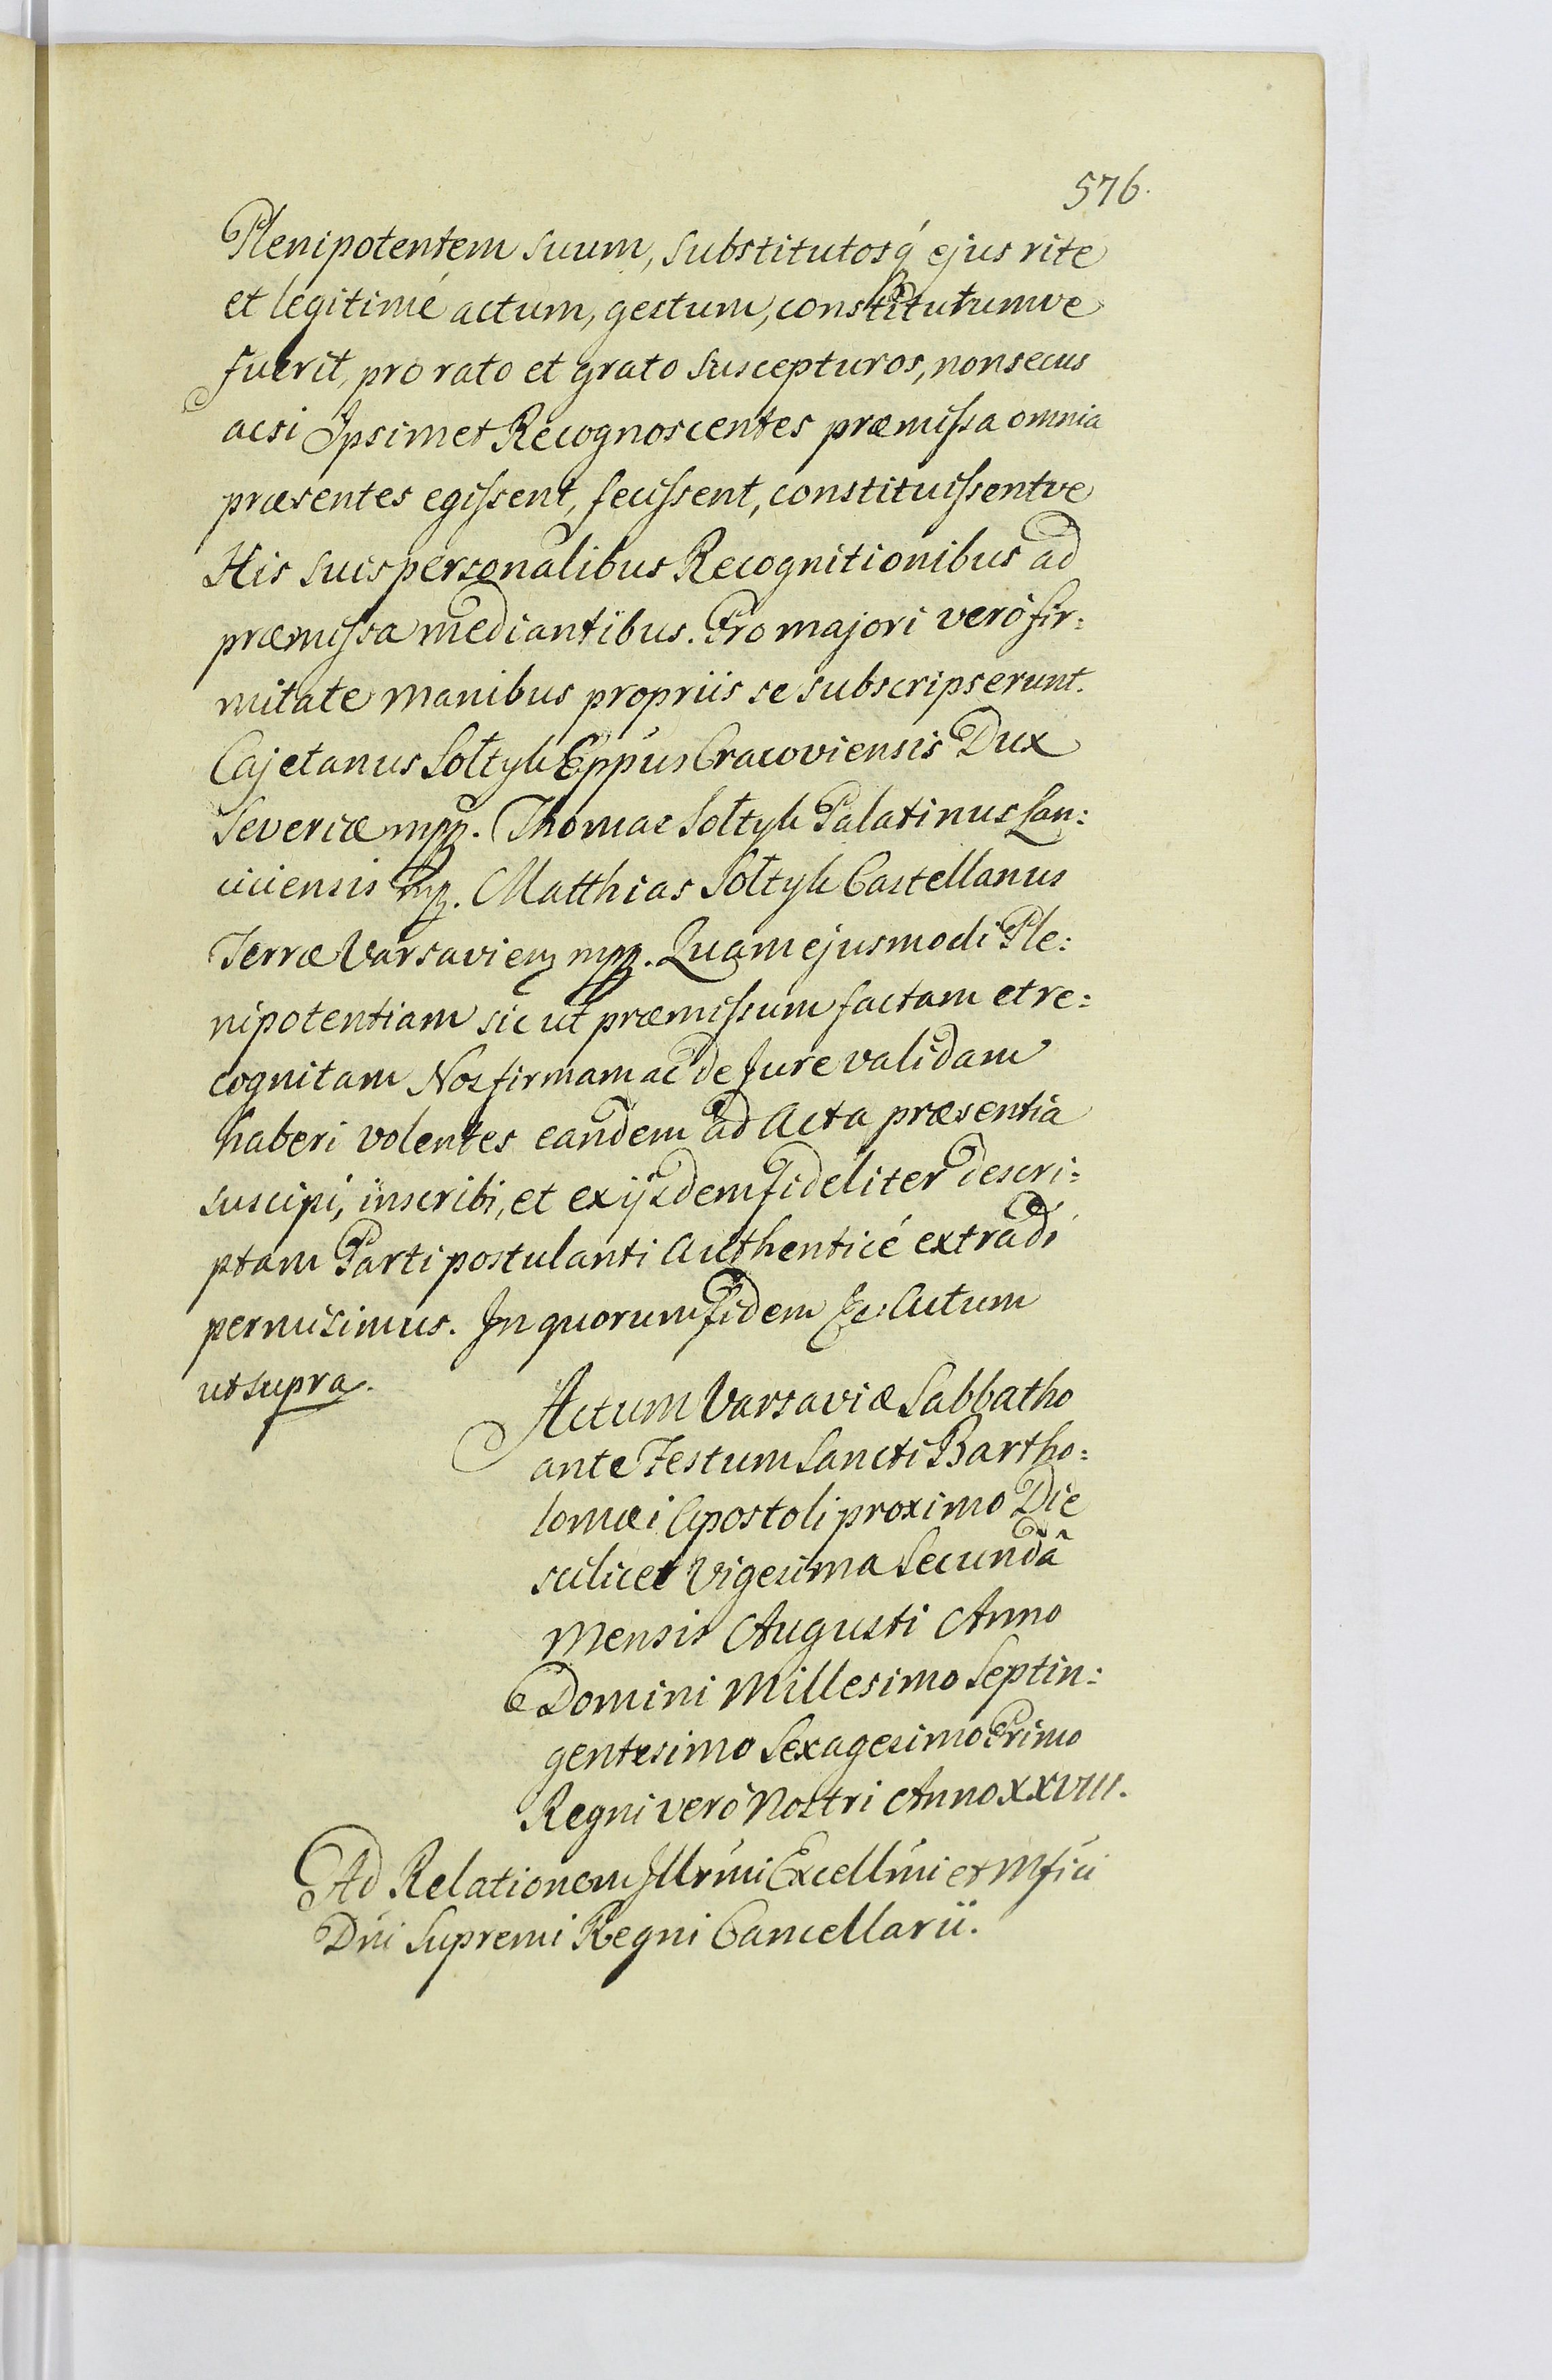 576.
Plenipotentem suum, substitutosq́ ejus rite
et legitimé actum, gestum, constitutumve
fuerit, pro rato et grato suscepturos, non secus
acsi Ipsimet Recognoscentes præmissa omnia
præsentes egissent, fecissent, constituissentve
His suis personalibus Recognitionibus ad
præmissa mediantibus. Pro majori veró fir:
mitate manibus propriis se subscripserunt.
Cajetanus Sołtyk Eppus Cracoviensis Dux
Severiæ mpp. Thomas Sołtyk Palatinus Lan:
ciciensis mp. Matthias Sołtyk Castellanus
Terræ Varsavien mpp. Quam ejusmodi Ple:
nipotentiam sic ut præmissum factam et re:
cognitam Nos firmam ac de Jure validam
haberi volentes eandem ad Acta præsentia
suscipi, inscribi, et ex ijsdem fideliter descri:
ptam Parti postulanti Authenticé extradi
permisimus. In quorum fidem &c. Actum
ut supra.
Actum Varsaviæ Sabbatho
ante Festum Sancti Bartho:
lomæi Apostoli proximo Die
scilicet Vigesima Secundâ
Mensis Augusti Anno
Domini Millesimo Septin:
gentesimo Sexagesimo Primo
Regni veró Nostri Anno XXVIII.
Ad Relationem Illrmi Excellmi et Mfici
Dni Supremi Regni Cancellarii.